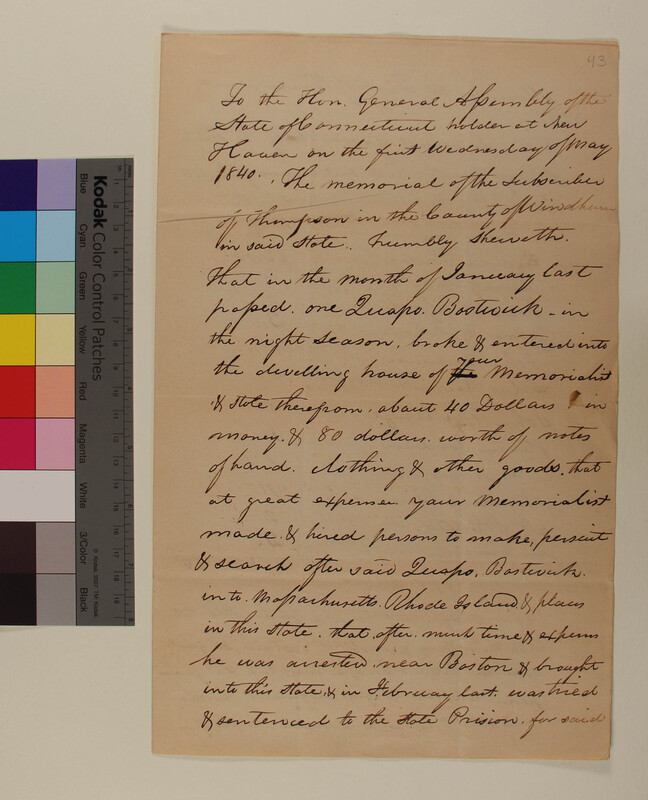 43
To the Hon. General Assembly of the
State of Connecticut holden at New
Haven on the first Wednesday of May
1840. The memorial of the Subscriber
of Thompson in the County of Windham
in said State. humbly sheweth.
That in the month of January last
passed. one Quapo. Bostwick - in
the night season, broke & entered into
the dwelling house of your Memorialist
& stole therefrom. about 40 Dollars in
money. & 80 dollars. worth of notes
of hand. clothing & other goods. that
at great expense your Memorialist
made. & hired persons to make, persuit
& search after said Quapo. Bostwick.
in to. Massachusetts. Rhode Island & places
in this State. that after. much time & expens
he was arrested near Boston & brought
into this State, & in February last. was tried
& sentenced to the State Prision. for said
Kodak Color Control Patches
Blue
Cyan
Green
Yellow
Red
Magenta
White
3/Color
Black